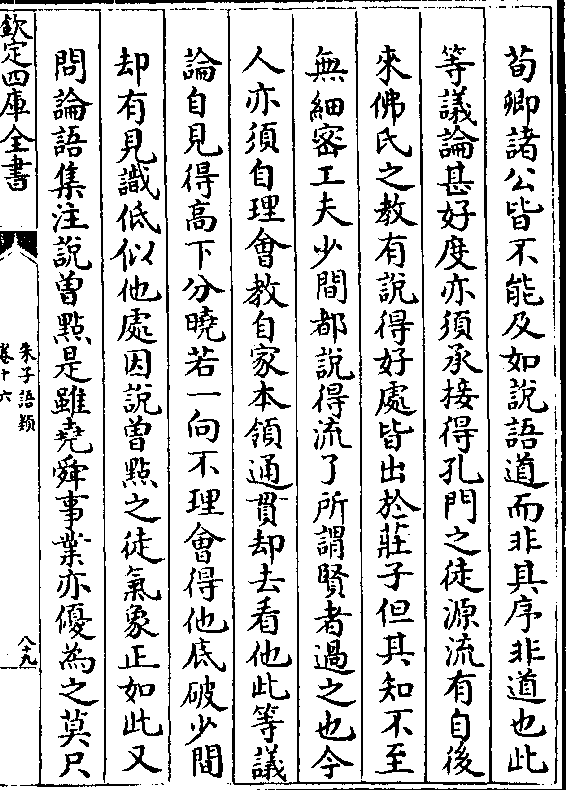 荀卿諸公皆不能及如說語道而非其序非道也此
等議論甚好度亦須承接得孔門之徒源流有自後
來佛氏之教有說得好處皆出於莊子但其知不至
無細密工夫少間都說得流了所謂賢者過之也今
人亦須自理會教自家本領通貫却去看他此等議
論自見得高下分曉若一向不理會得他底破少間
却有見識低似他處因說曽㸃之徒氣象正如此又
問論語集注說曽㸃是雖堯舜事業亦優為之莫只
欽定四庫全書
朱子語類
卷十六
八十九